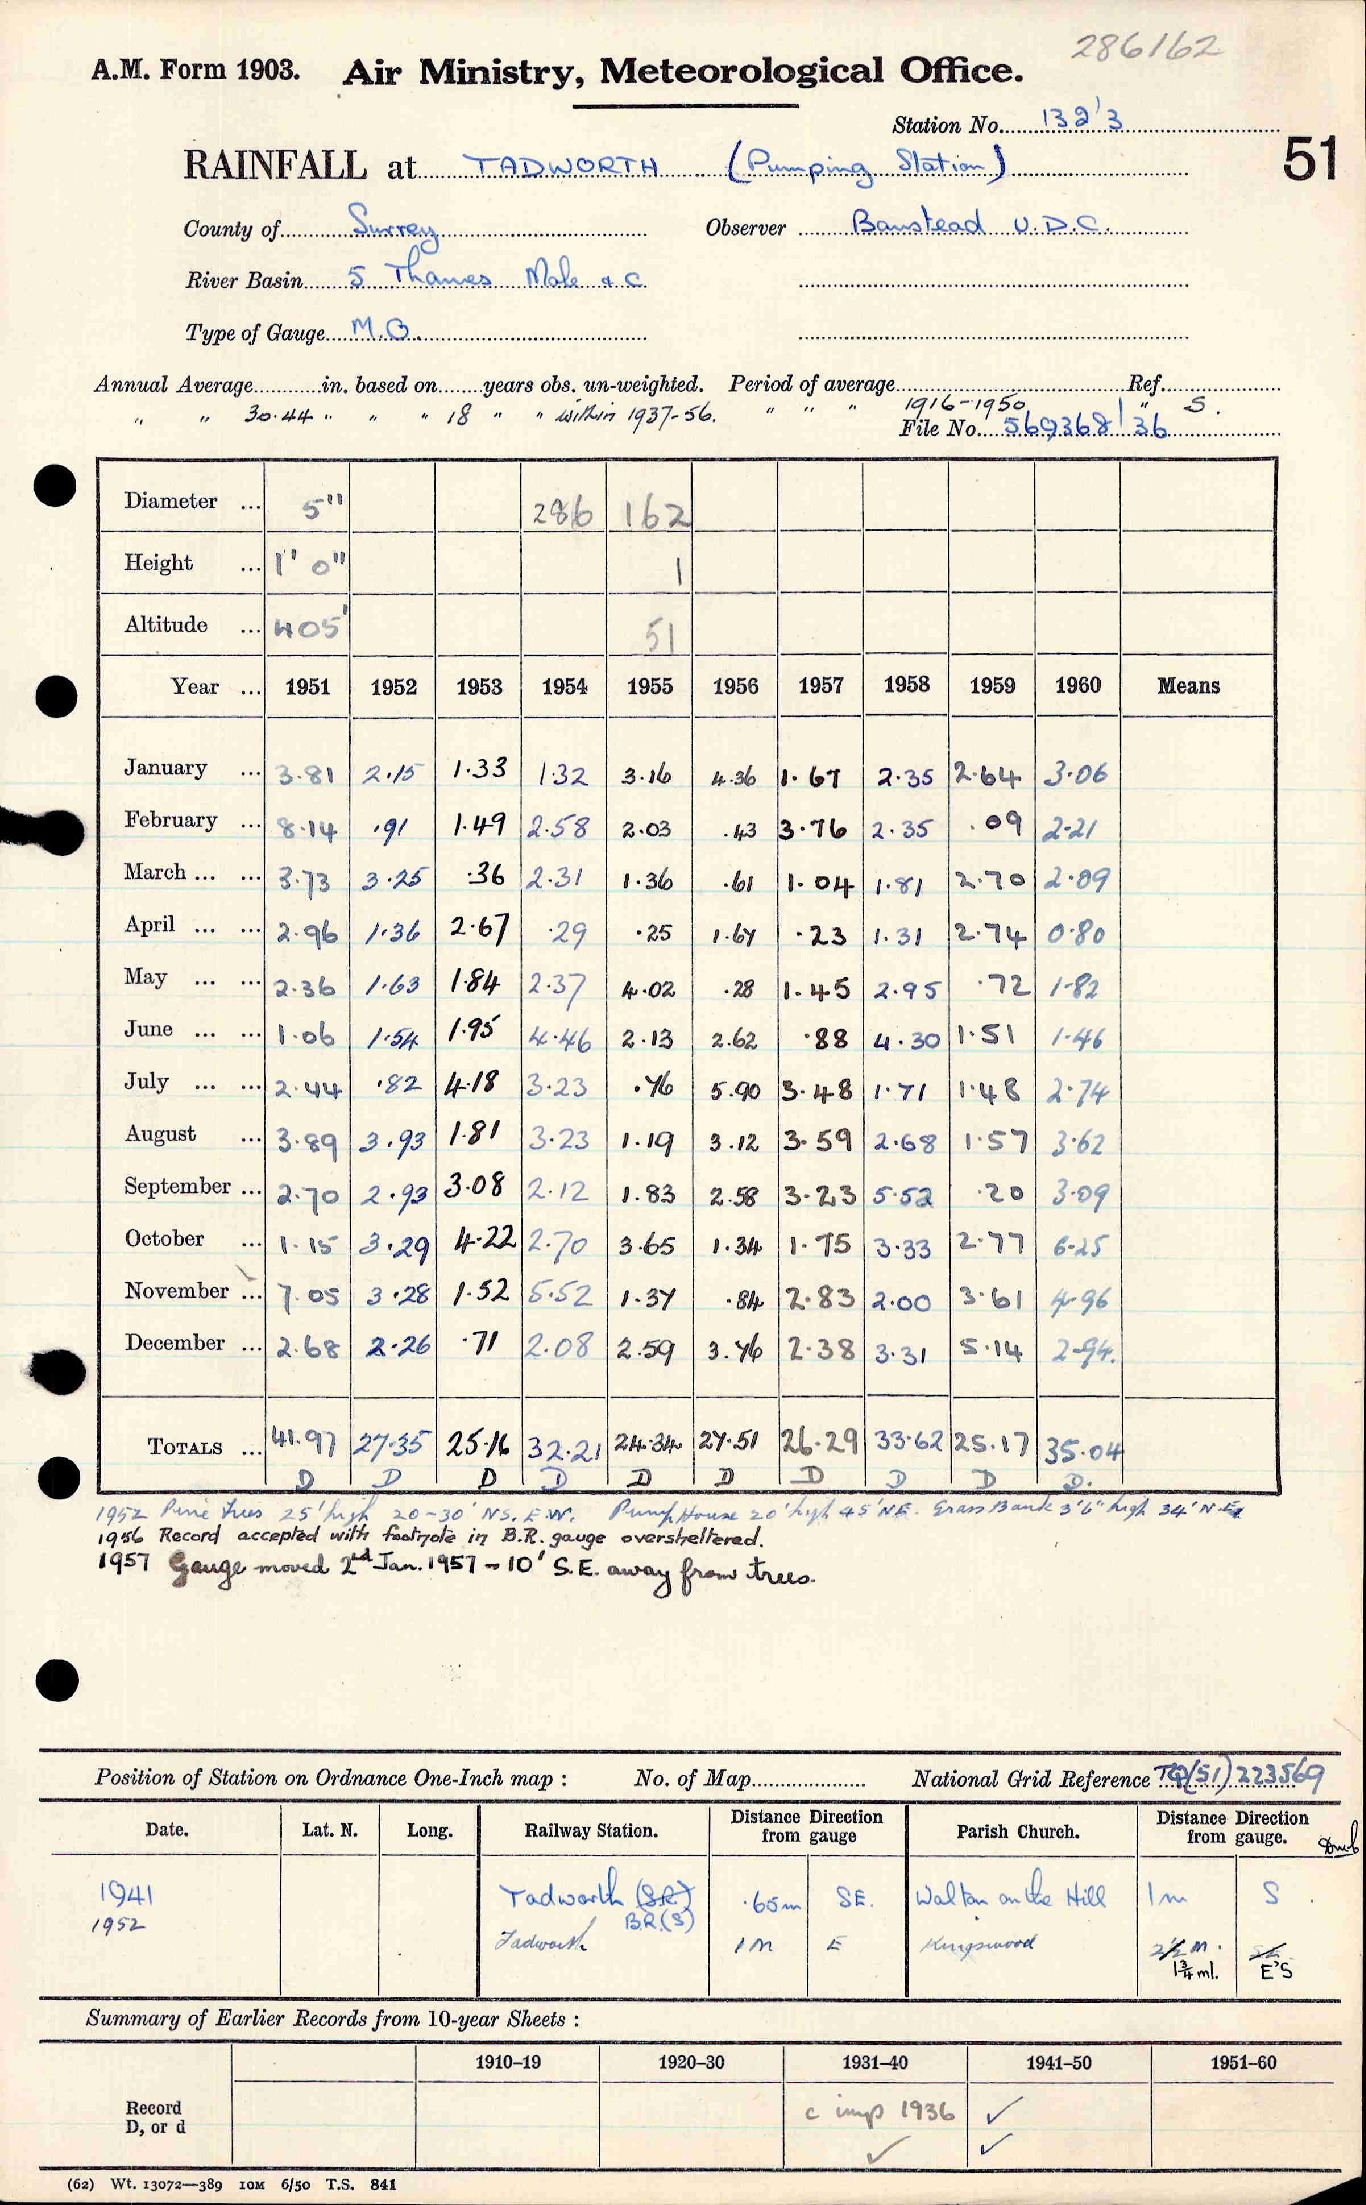 286162
A.M. Form 1903. Air Ministry, Meteorological Office.
Station No. 132'3
51
RAINFALL at TADWORTH (Pumping Station)
County of Surrey Observer Banstead U.D.C.
River Basin 5 Thames Mole & C
Type of Gauge M.O.
Annual Average in. based on years obs. un-weighted. Period of average Ref.
" " 30.44 " " " 18 " " within 1937-56. " " " 1916-1950 " S.
File No. 569368/36
Diameter ... 5" 286 162
Height ... 1' 0" 1
Altitude ... 405' 51
Year ... 1951 1952 1953 1954 1955 1956 1957 1958 1959 1960 Means
January ... 3.81 2.15 1.33 1.32 3.16 4.36 1.67 2.35 2.64 3.06
February ... 8.14 .91 1.49 2.58 2.03 .43 3.76 2.35 .09 2.21
March ... ... 3.73 3.25 .36 2.31 1.36 .61 1.04 1.81 2.70 2.09
April ... ... 2.96 1.36 2.67 .29 .25 1.67 .23 1.31 2.74 0.80
May ... ... 2.36 1.63 1.84 2.37 4.02 .28 1.45 2.95 .72 1.82
June ... ... 1.06 1.54 1.95 4.46 2.13 2.62 .88 4.30 1.51 1.46
July ... ... 2.44 .82 4.18 3.23 .76 5.90 3.48 1.71 1.48 2.74
August ... 3.89 3.93 1.81 3.23 1.19 3.12 3.59 2.68 1.57 3.62
September ... 2.70 2.93 3.08 2.12 1.83 2.58 3.23 5.52 .20 3.09
October ... 1.15 3.29 4.22 2.70 3.65 1.34 1.75 3.33 2.77 6.25
November ... 7.05 3.28 1.52 5.52 1.37 .84 2.83 2.00 3.61 4.96
December ... 2.68 2.26 .71 2.08 2.59 3.76 2.38 3.31 5.14 2.94.
TOTALS ... 41.97 27.35 25.16 32.21 24.34 27.51 26.29 33.62 25.17 35.04
D D D D D D D D D D.
1952 Pine trees 25' high 20-30' NS. E.W. Pump House 20' high 45' NE. Grass Bank 3'6" high 34' N.E.
1956 Record accepted with footnote in B.R. gauge oversheltered.
1957 Gauge moved 2nd Jan. 1957 - 10' S.E. away from trees.
Position of Station on Ordnance One-Inch map : No. of Map National Grid Reference TQ(51)223569
Date. Lat. N. Long. Railway Station. Distance from gauge Direction Parish Church. Distance from gauge. Direction
1941 Tadworth (S.R.) .65m SE. Walton on the Hill 1m S.
B.R.(S)
1952 Tadworth 1m E Kingswood 2½ m. S.E.
1¾ ml. E'S
Summary of Earlier Records from 10-year Sheets :
1910–19 1920–30 1931–40 1941–50 1951–60
Record c imp 1936 ✓
D, or d ✓ ✓
(62) Wt. 13072—389 10M 6/50 T.S. 841